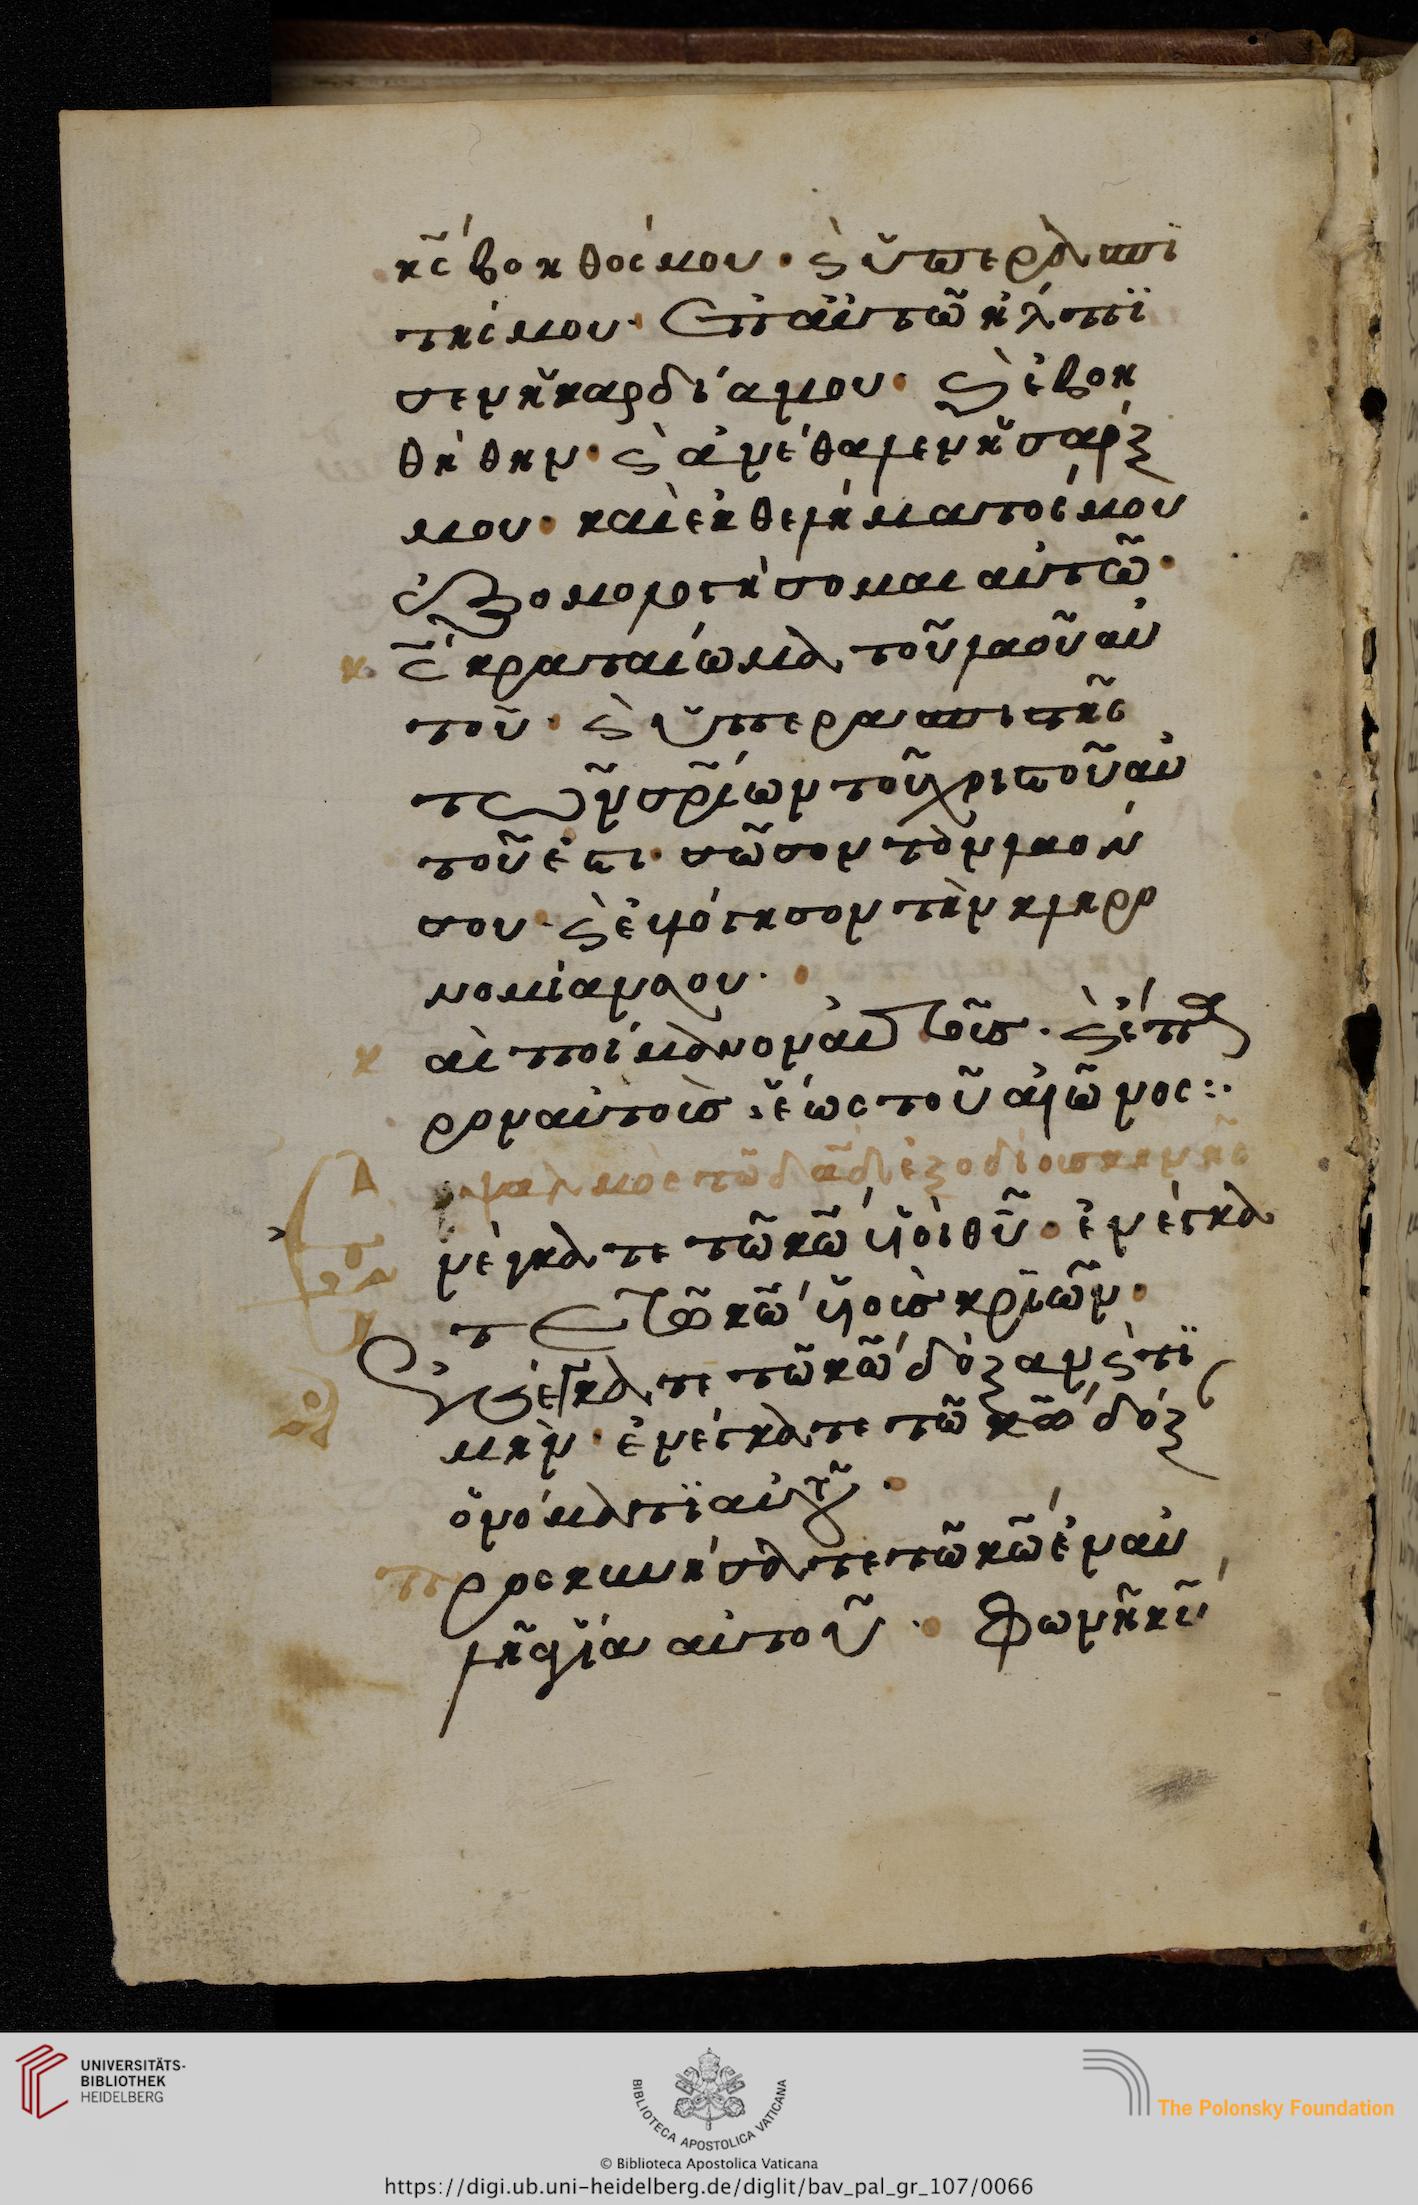 κ̃ς βοηθός μου · ϛ ὑπερασπι
τής μου · ἐπ αὐτῶ ἤλπϊ
σεν ἡ καρδία μου · ϛ ἐβοη
θήθην · ϛ ἀνέθαλεν ἡ σάρξ
μου · καὶ ἐκ θελήματός μου
ἐξομολογήσομαι αὐτῶ ·
κ̃ς κραταίωμα τοῦ λαοῦ αὐ
τοῦ · ϛ ὑπερασπιστὴς
τῶν σρ̃ίων τοῦ χριστοῦ αὐ
τοῦ ἐστι · σῶσον τὸν λαόν
σου · ϛ εὐλόγησον τὴν κληρο
νομίαν σου ·
κ αὶ ποίμανον αὐτοῖς · ϛ ἔπα
ρον αὐτοῖς ἕως τοῦ αἰῶνος :·
ψαλμὸς τῶ δᾶδ ἐξοδίου σκηνῆς
ἐνέγκατε τῶ κῶ υἱοὶ θῦ · ἐνέγκα
τε τῶ κῶ υἱοὺς κριῶν ·
ἐνέγκατε τῶ κῶ δόξαν ϛ τϊ
μήν · ἐνέγκατε τῶ κῶ δόξ
ὀνόματϊ αὐτοῦ ·
προσκυνήσατε τῶ κῶ ἐν αὐ
λῇ ἁγία αὐτοῦ · φωνὴ κῦ
UNIVERSITÄTS-
BIBLIOTHEK
HEIDELBERG
BIBLIOTECA APOSTOLICA VATICANA
The Polonsky Foundation
© Biblioteca Apostolica Vaticana
https://digi.ub.uni-heidelberg.de/diglit/bav_pal_gr_107/0066